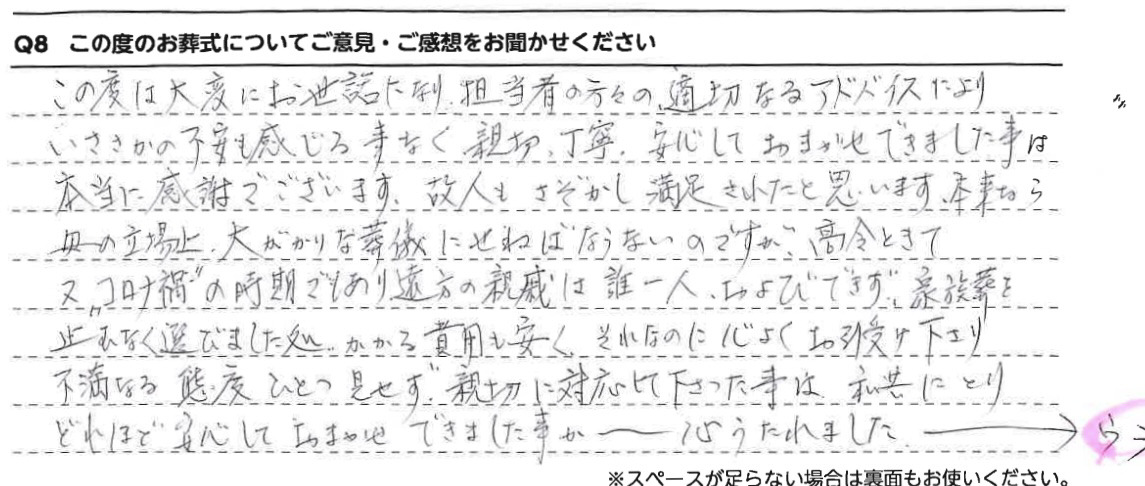 Q8 この度のお葬式についてご意見・ご感想をお聞かせください
この度は大変にお世話になり、担当者の方々の、適切なるアドバイスにより
いささかの不安も感じる事なく親切、丁寧、安心しておまかせできました事は
本当に感謝でございます、故人もさぞかし満足されたと思います、本来なら
母の立場上、大がかりな葬儀にせねばならないのですが、高令ときて
又"コロナ禍"の時期でもあり遠方の親戚は誰一人、およびできず、家族葬を
止むなく選びました処、かかる費用も安く、それなのに心よくお引受け下さり
不満なる態度ひとつ見せず、親切に対応して下さった事は私共にとり
どれほど安心しておまかせできました事か――心うたれました、→うラ
※スペースが足らない場合は裏面もお使いください。